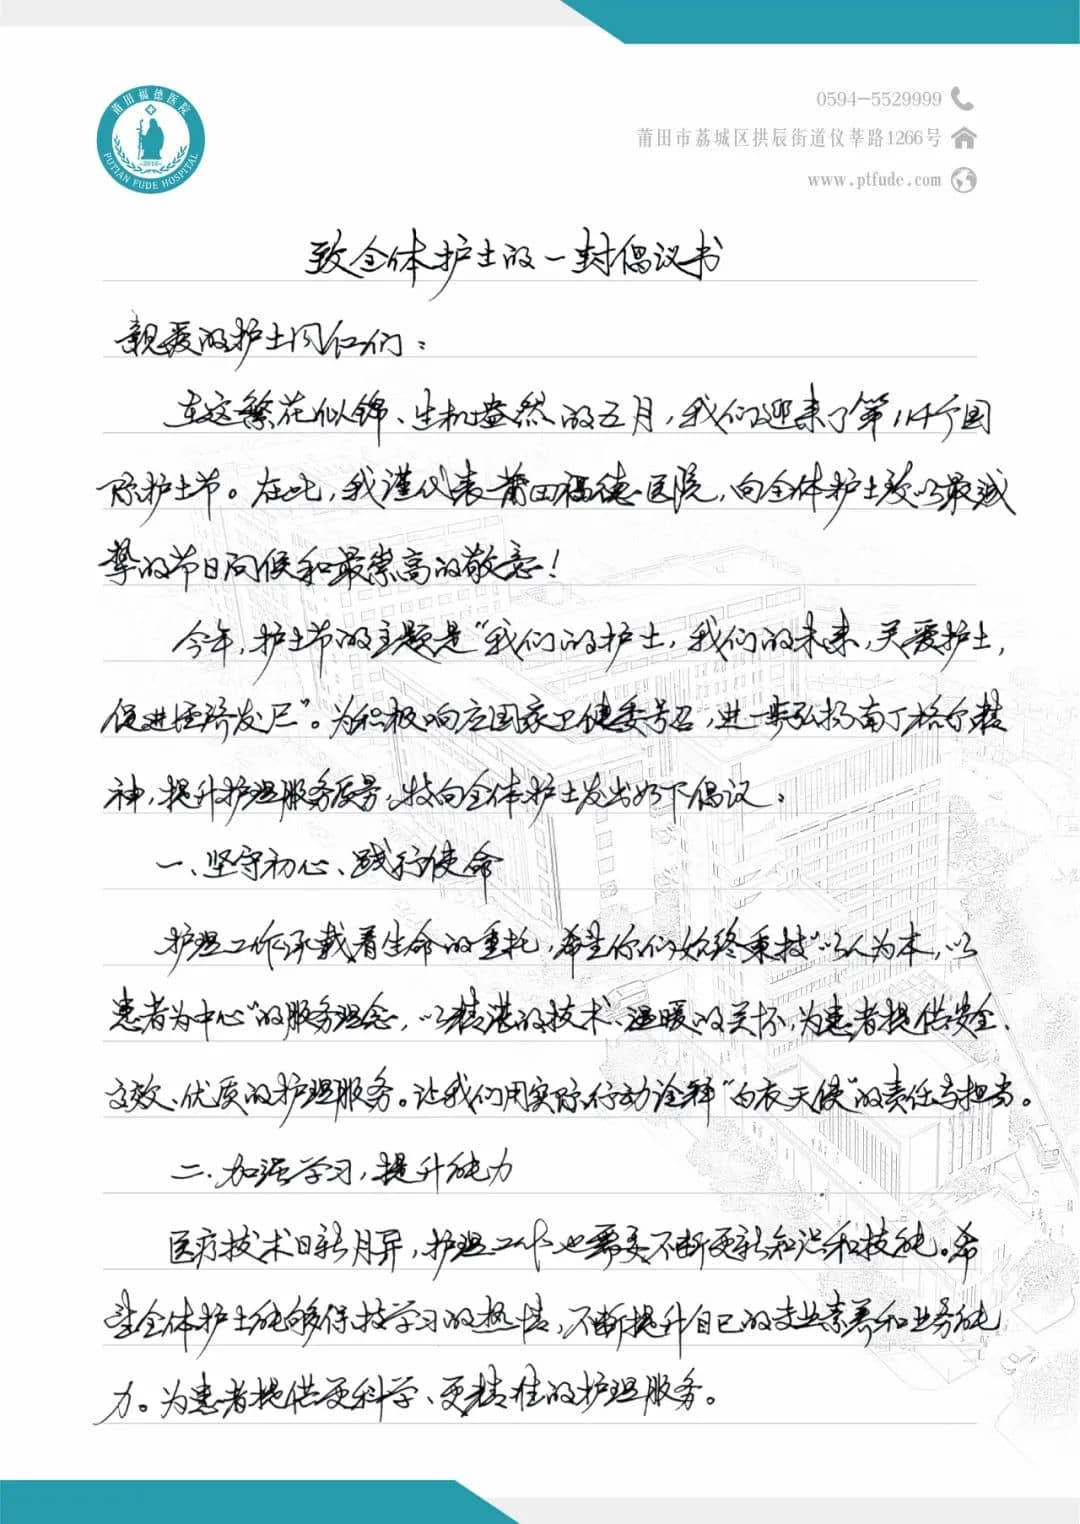 莆田福德医院
·2016·
PUTIAN FUDE HOSPITAL
0594-5529999
莆田市荔城区拱辰街道仪莘路1266号
www.ptfude.com
致全体护士的一封倡议书
亲爱的护士同仁们：
在这繁花似锦、生机盎然的五月，我们迎来了第114个国
际护士节。在此，我谨代表莆田福德医院，向全体护士致以最诚
挚的节日问候和最崇高的敬意！
今年，护士节的主题是“我们的护士，我们的未来，关爱护士，
促进经济发展”。为积极响应国家卫健委号召，进一步弘扬南丁格尔精
神，提升护理服务质量，特向全体护士发出如下倡议：
一、坚守初心、践行使命
护理工作承载着生命的重托，希望你们始终秉持“以人为本，以
患者为中心”的服务理念，以精湛的技术、温暖的关怀，为患者提供安全、
高效、优质的护理服务。让我们用实际行动诠释“白衣天使”的责任与担当。
二、加强学习，提升能力
医疗技术日新月异，护理工作也需要不断更新知识和技能。希
望全体护士能够保持学习的热情，不断提升自己的专业素养和业务能
力。为患者提供更科学、更精准的护理服务。